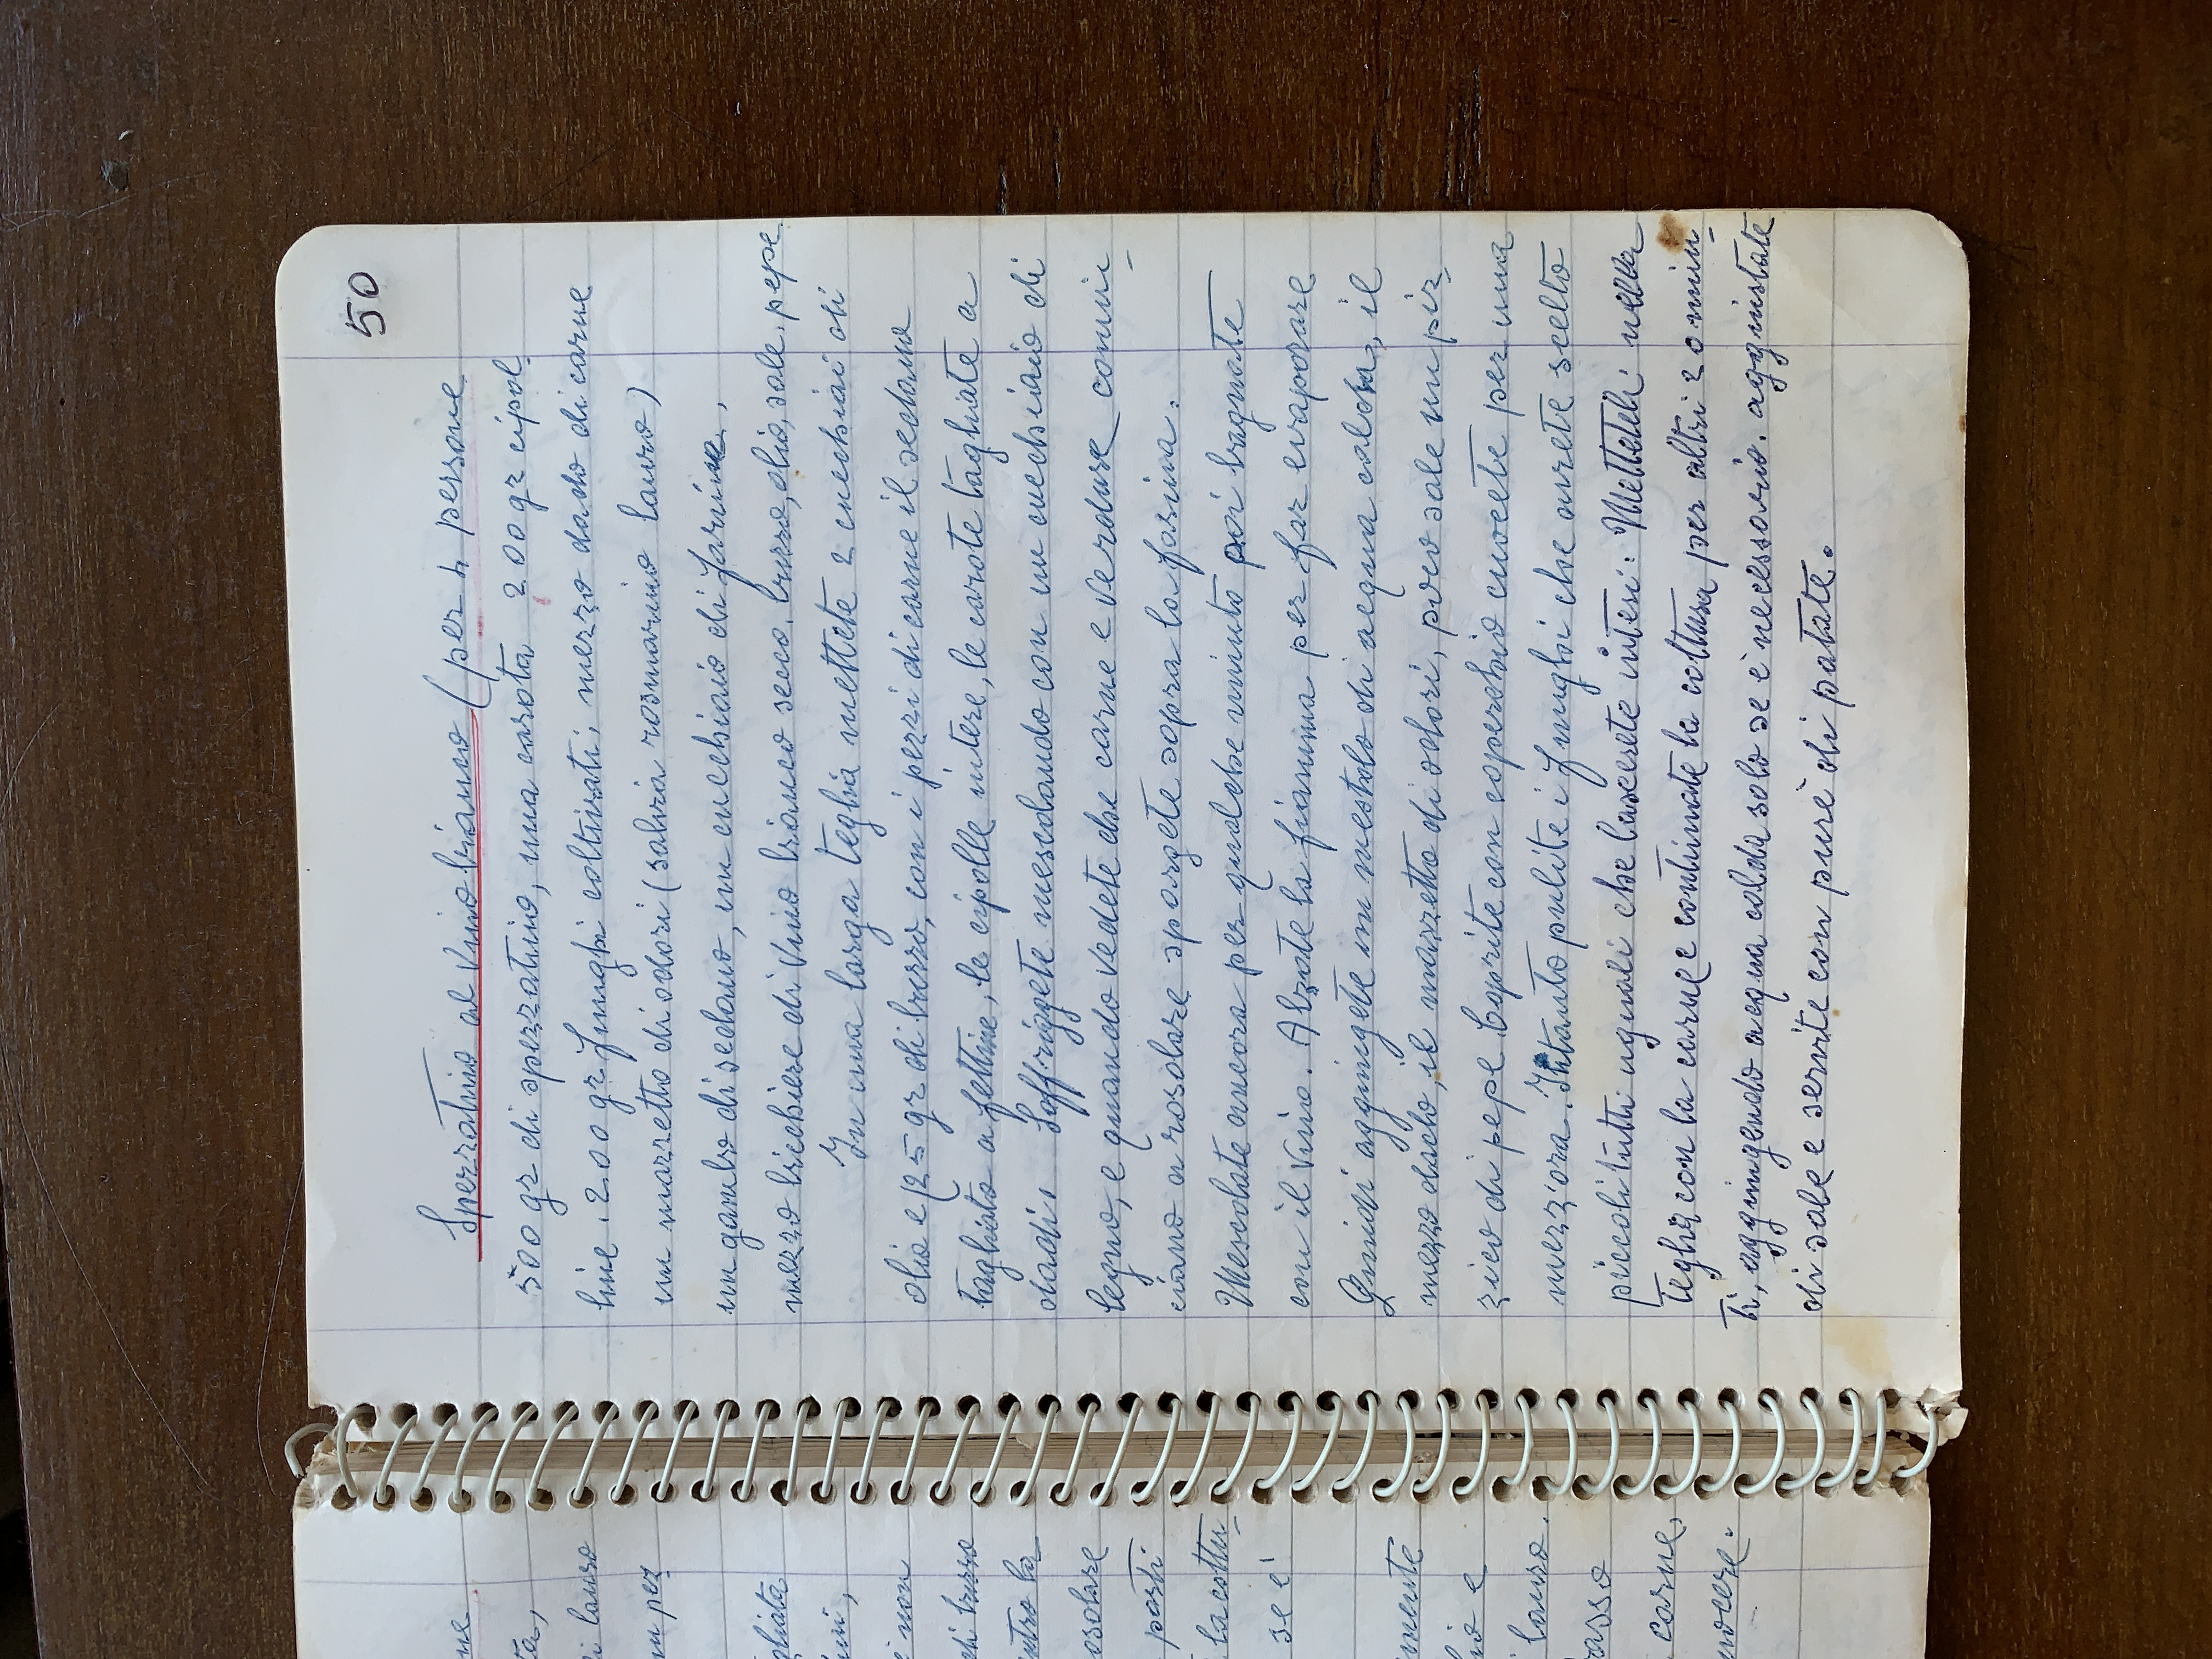 ne
ta,
i lauro
un pez
gliata
uri,
è non
di burro
entro la
osolare
parti
la cottu_
se e'
mente
lio e
lauro.
basso
carne,
uocere.
50
Spezzatino al vino bianco (per 4 persone
500 gr di spezzatino, una carota 200 gr cipol_
line. 200 gr funghi coltivati; mezzo dado di carne
un mazzetto di odori (salvia rosmarino lauro)
un gambo di sedano, un cucchiaio di farina,
mezzo bicchiere di vino bianco secco. burro, olio, sale. pepe.
In una larga teglia mettete 2 cucchiai di
olio e 25 gr di burro, con i pezzi di carne il sedano
tagliato a fettine, le cipolle intere, le carote tagliate a
dadi. Soffriggete mescolando con un cucchiaio di
legno, e quando vedete che carne e verdure comin_
ciano a rosolare spargete sopra la farina.
Mescolate ancora per qualche minuto poi bagnate
con il vino. Alzate la fiamma per far evaporare
Quindi aggiungete un mestolo di acqua calda, il
mezzo dado, il mazzetto di odori, poco sale un piz_
zico di pepe Coprite con coperchio cuocete per una
mezz'ora. Intanto pulite i funghi che avrete scelto
piccoli tutti uguali che lascerete interi. Metteteli nella
teglia con la carne e continuate la cottura per altri 20 minu_
ti, aggiungendo acqua calda solo se è necessario. aggiustate
di sale e servite con purè di patate.